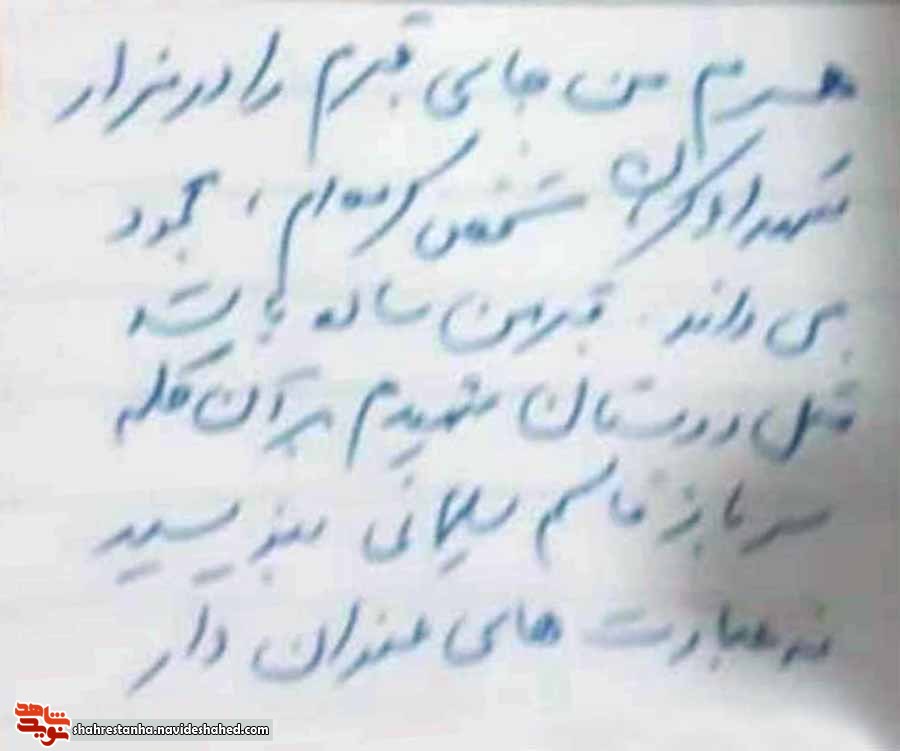 همسرم من جای قبرم را در مزار
شهدا کرمان مشخص کرده‌ام، محمود
می داند. قبر من ساده باشد
مثل دوستان شهیدم بر آن کلمه
سرباز قاسم سلیمانی بنویسید
نه عبارت های عنوان دار
نوید شاهد
shahrestanha.navideshahed.com